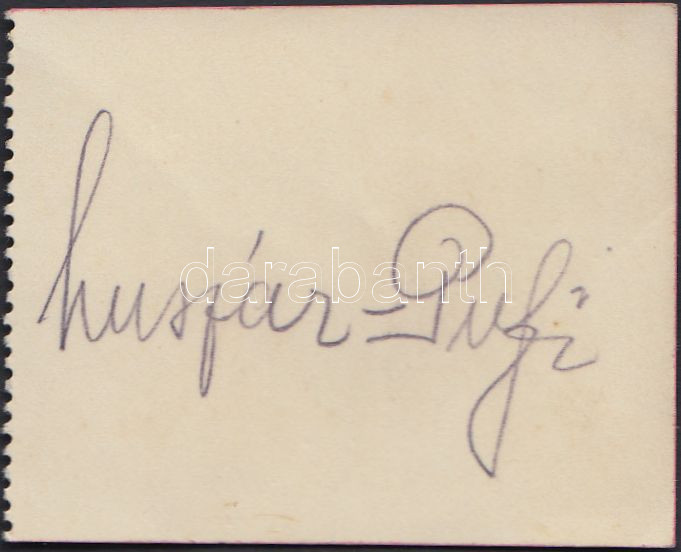 huszár=Pufi
darabanth